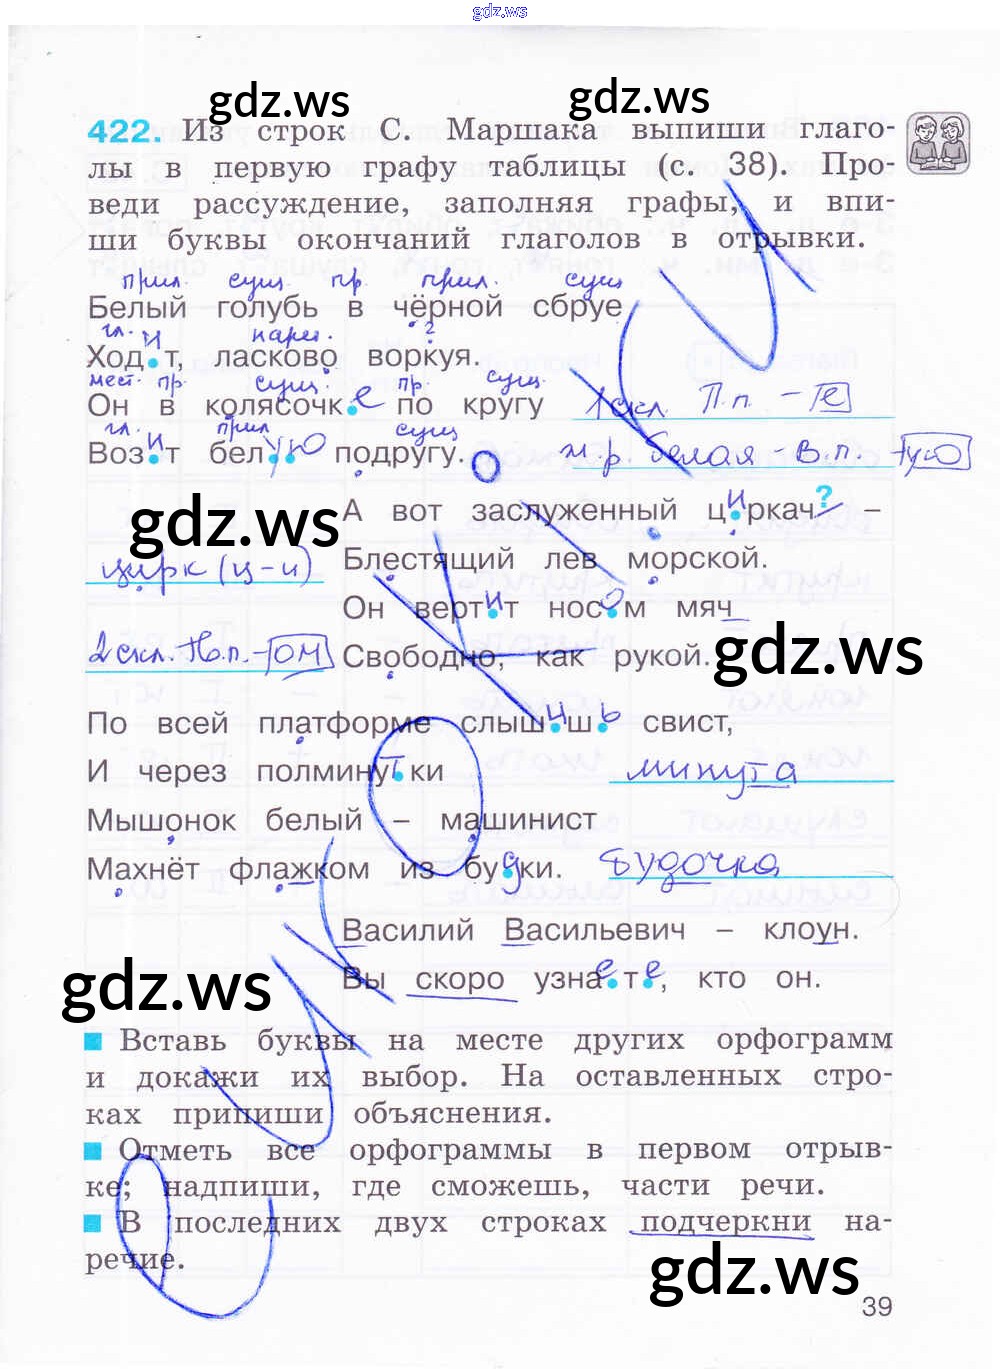 gdz.ws
gdz.ws gdz.ws
422. Из строк С. Маршака выпиши глаго-
лы в первую графу таблицы (с. 38). Про-
веди рассуждение, заполняя графы, и впи-
ши буквы окончаний глаголов в отрывки.
прил. сущ. пр. прил. сущ
Белый голубь в чёрной сбруе
гл. нареч. г
Ходит, ласково воркуя.
мест. пр. сущ. пр. сущ.
Он в колясочке по кругу 1 скл. П.п. - е
гл. прил сущ
Возит белую подругу. ж.р. белая - В.п. - ую
gdz.ws А вот заслуженный циркач –
цирк (ц-и) Блестящий лев морской.
Он вертит носом мяч
2 скл. - Т.п. - ом Свободно, как рукой. gdz.ws
По всей платформе слышишь свист,
И через полминутки минута
Мышонок белый – машинист
Махнёт флажком из будки. будочка
Василий Васильевич – клоун.
gdz.ws Вы скоро узнаете, кто он.
Вставь буквы на месте других орфограмм
и докажи их выбор. На оставленных стро-
ках припиши объяснения.
Отметь все орфограммы в первом отрыв-
ке; надпиши, где сможешь, части речи.
В последних двух строках подчеркни на-
речие.
gdz.ws
39